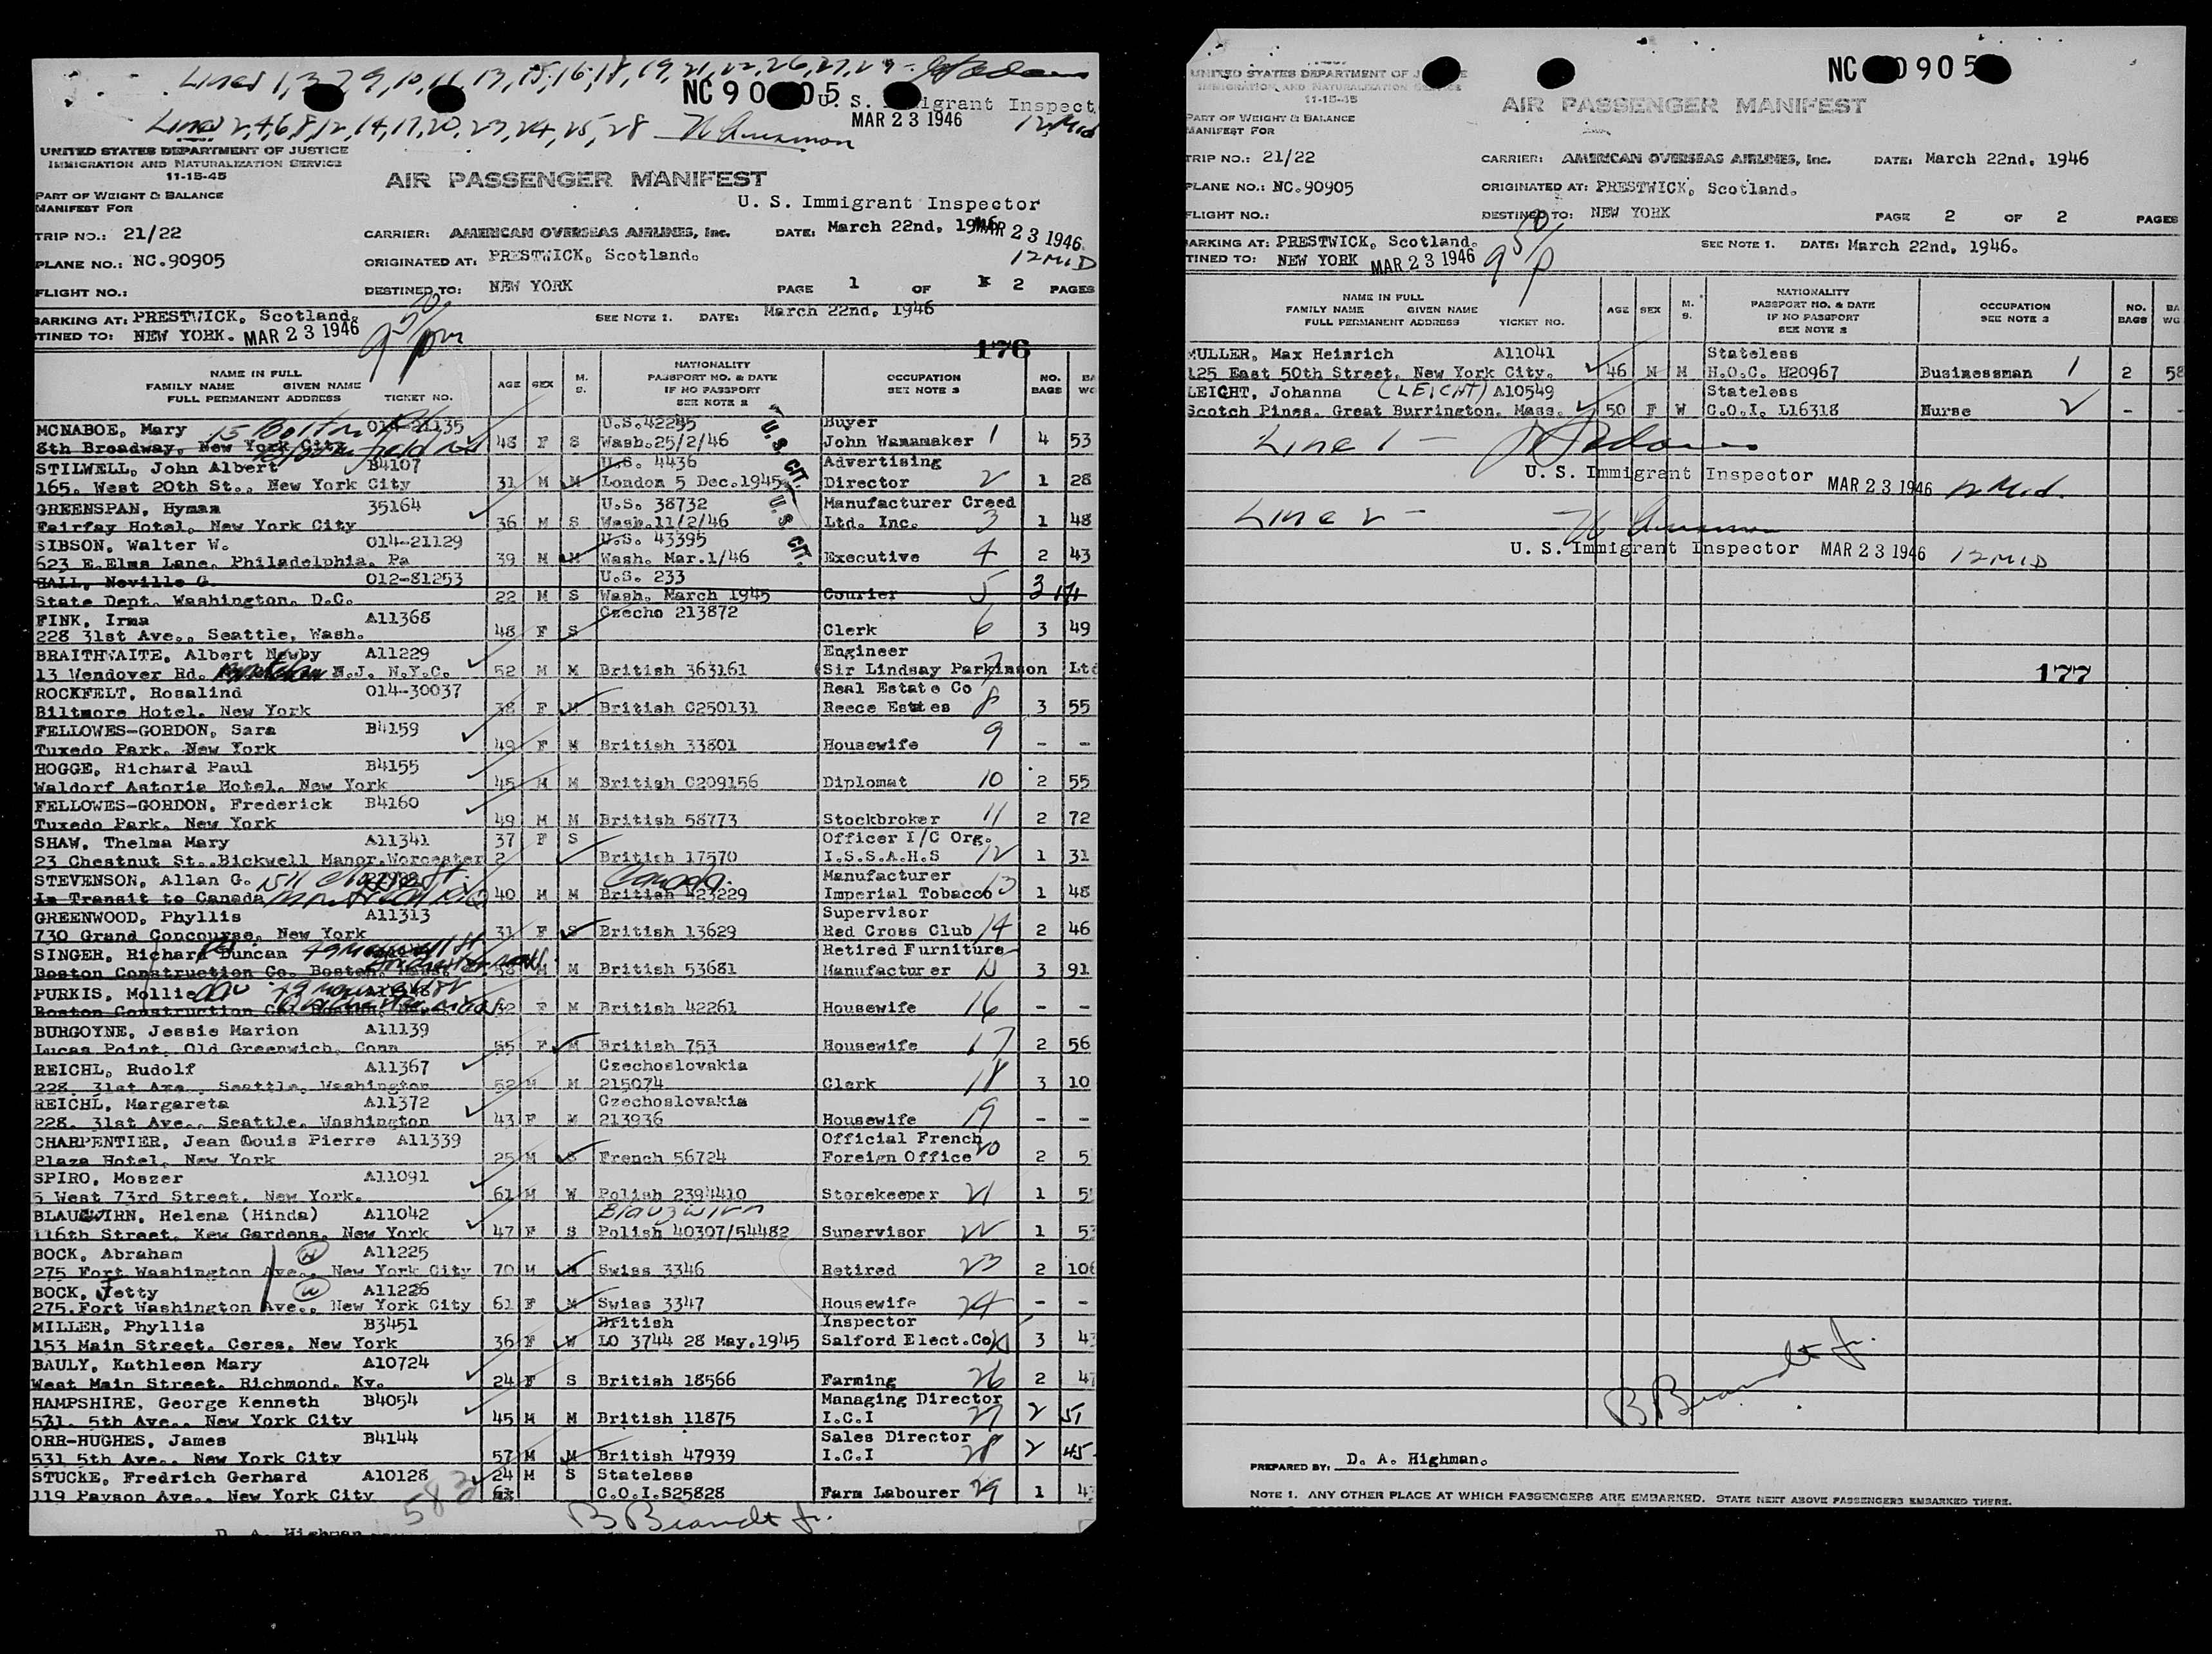 Lines 1, 3, 7, 9, 10, 11, 13, 15, 16, 18, 19, 21, 22, 26, 27, 29 -
NC 90 05 U. S. Immigrant Inspect
MAR 23 1946 12 Mid
Lines 2, 4, 6, 8, 12, 14, 17, 20, 23, 24, 25, 28
UNITED STATES DEPARTMENT OF JUSTICE
IMMIGRATION AND NATURALIZATION SERVICE
11-15-45
AIR PASSENGER MANIFEST
PART OF WEIGHT & BALANCE
MANIFEST FOR
U. S. Immigrant Inspector
TRIP NO.: 21/22 CARRIER: AMERICAN OVERSEAS AIRLINES, Inc. DATE: March 22nd, 1946 MAR 23 1946
12 MID
PLANE NO.: NC.90905 ORIGINATED AT: PRESTWICK, Scotland.
FLIGHT NO.: DESTINED TO: NEW YORK PAGE 1 OF 2 PAGES
BARKING AT: PRESTWICK, Scotland. SEE NOTE 1. DATE: March 22nd, 1946
TINED TO: NEW YORK. MAR 23 1946 9 50 pm
176
NAME IN FULL
FAMILY NAME GIVEN NAME
FULL PERMANENT ADDRESS TICKET NO.
AGE SEX M. S.
NATIONALITY
PASSPORT NO. & DATE
IF NO PASSPORT
SEE NOTE 2
OCCUPATION
SEE NOTE 3
NO. BAGS
MCNABOE, Mary 014-21135 U.S.42295 Buyer
8th Broadway, New York City 48 F S Wash.25/2/46 John Wanamaker 1 4 53
U.S. CIT.
STILWELL, John Albert B4107 U.S. 4436 Advertising
165. West 20th St., New York City 31 M M London 5 Dec.1945 Director 2 1 28
GREENSPAN, Hyman 35164 U.S. 38732 Manufacturer Creed
Fairfay Hotel, New York City 36 M S Wash.11/2/46 Ltd. Inc. 3 1 48
U.S. CIT.
SIBSON, Walter W. 014-21129 U.S. 43395
623 E.Elms Lane, Philadelphia, Pa 39 M M Wash. Mar.1/46 Executive 4 2 43
HALL, Neville G. 012-81253 U.S. 233
State Dept. Washington. D.C. 22 M S Wash. March 1945 Courier 5 3
FINK, Irma A11368 Czecho 213872
228 31st Ave., Seattle, Wash. 48 F S Clerk 6 3 49
BRAITHWAITE, Albert Newby A11229 Engineer
13 Wendover Rd. N.J. N.Y.C. 52 M M British 363161 (Sir Lindsay Parkinson Ltd 7
ROCKFELT, Rosalind 014-30037 Real Estate Co
Biltmore Hotel, New York 38 F M British C250131 Reece Estates 8 3 55
FELLOWES-GORDON, Sara B4159
Tuxedo Park, New York 49 F M British 33801 Housewife 9 - -
HOGGE, Richard Paul B4155
Waldorf Astoria Hotel. New York 45 M M British C209156 Diplomat 10 2 55
FELLOWES-GORDON, Frederick B4160
Tuxedo Park, New York 49 M M British 58773 Stockbroker 11 2 72
SHAW, Thelma Mary A11341 37 F S Officer I/C Org.
23 Chestnut St..Bickwell Manor.Worcester 2 British 17570 I.S.S.A.H.S 12 1 31
STEVENSON, Allan G. Canada. Manufacturer
In Transit to Canada 40 M M British 423229 Imperial Tobacco 13 1 48
GREENWOOD, Phyllis A11313 Supervisor
730 Grand Concourse, New York 31 F S British 13629 Red Cross Club 14 2 46
SINGER, Richard Duncan Retired Furniture
Boston Construction Co. Boston, 58 M M British 53681 Manufacturer 15 3 91
PURKIS, Mollie
Boston Construction Co. Boston, 52 F M British 42261 Housewife 16 - -
BURGOYNE, Jessie Marion A11139
Lucas Point, Old Greenwich, Conn 55 F M British 753 Housewife 17 2 56
REICHL, Rudolf A11367 Czechoslovakia
228. 31st Ave., Seattle, Washington 52 M M 215074 Clerk 18 3 10
REICHL, Margareta A11372 Czechoslovakia
228. 31st Ave., Seattle, Washington 43 F M 213936 Housewife 19 - -
CHARPENTIER, Jean Douis Pierre A11339 Official French
Plaza Hotel, New York 25 M S French 56724 Foreign Office 20 2 5
SPIRO, Moszer A11091
5 West 73rd Street, New York. 61 M W Polish 2394410 Storekeeper 21 1 5
BLAUZWIRN, Helena (Hinda) A11042 Blauzwirn
116th Street, Kew Gardens, New York 47 F S Polish 40307/54482 Supervisor 22 1 53
BOCK, Abraham A11225
275 Fort Washington Ave., New York City 70 M M Swiss 3346 Retired 23 2 106
BOCK, Jetty A11226
275.Fort Washington Ave., New York City 61 F M Swiss 3347 Housewife 24 - -
MILLER, Phyllis B3451 British Inspector
153 Main Street. Ceres, New York 36 F W LO 3744 28 May.1945 Salford Elect.Co 25 3 43
BAULY, Kathleen Mary A10724
West Main Street. Richmond. Ky. 24 F S British 18566 Farming 26 2 47
HAMPSHIRE, George Kenneth B4054 Managing Director
531. 5th Ave., New York City 45 M M British 11875 I.C.I 27 2 51
ORR-HUGHES, James B4144 Sales Director
531 5th Ave., New York City 57 M M British 47939 I.C.I 28 2 45
STUCKE, Fredrich Gerhard A10128 24 M S Stateless
119 Payson Ave., New York City C.O.I.S25828 Farm Labourer 29 1 43
583
D. A. Highman
B Brandt Jr.
NC 0905
UNITED STATES DEPARTMENT OF J E
IMMIGRATION AND NATURALIZATION SERVICE
11-15-45
AIR PASSENGER MANIFEST
PART OF WEIGHT & BALANCE
MANIFEST FOR
TRIP NO.: 21/22 CARRIER: AMERICAN OVERSEAS AIRLINES, Inc. DATE: March 22nd, 1946
PLANE NO.: NC.90905 ORIGINATED AT: PRESTWICK, Scotland.
FLIGHT NO.: DESTINED TO: NEW YORK PAGE 2 OF 2 PAGES
ARKING AT: PRESTWICK, Scotland. SEE NOTE 1. DATE: March 22nd, 1946.
TINED TO: NEW YORK MAR 23 1946 9 50 p
NAME IN FULL
FAMILY NAME GIVEN NAME
FULL PERMANENT ADDRESS TICKET NO.
AGE SEX M. S.
NATIONALITY
PASSPORT NO. & DATE
IF NO PASSPORT
SEE NOTE 2
OCCUPATION
SEE NOTE 3
NO. BAGS
MULLER, Max Heinrich A11041 Stateless
125 East 50th Street, New York City. 46 M M H.O.C. H20967 Businessman 1 2 58
LEIGHT, Johanna (LEICHT) A10549 Stateless
Scotch Pines. Great Burrington. Mass. 50 F W C.O.I. L16318 Nurse 2 - -
Line 1 -
U. S. Immigrant Inspector MAR 23 1946 12 Mid.
Line 2 -
U. S. Immigrant Inspector MAR 23 1946 12 MID
177
B Brandt Jr.
PREPARED BY: D. A. Highman.
NOTE 1. ANY OTHER PLACE AT WHICH PASSENGERS ARE EMBARKED. STATE NEXT ABOVE PASSENGERS EMBARKED THERE.